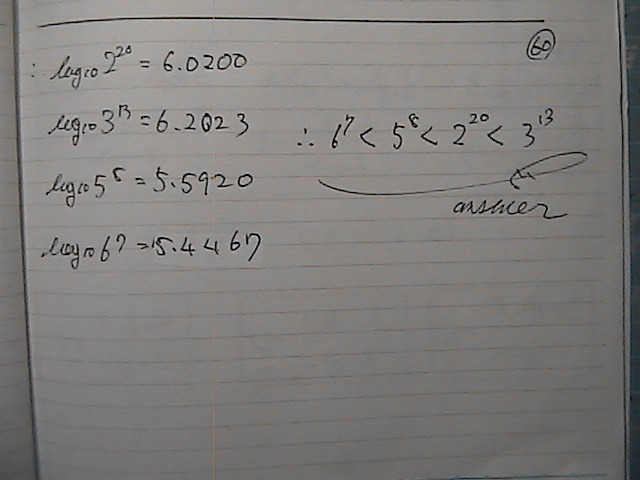 60
∴ log₁₀2²⁰ = 6.0200
log₁₀3¹³ = 6.2023
log₁₀5⁸ = 5.5920
log₁₀6⁷ = 5.4467
∴ 6⁷ < 5⁸ < 2²⁰ < 3¹³
answer